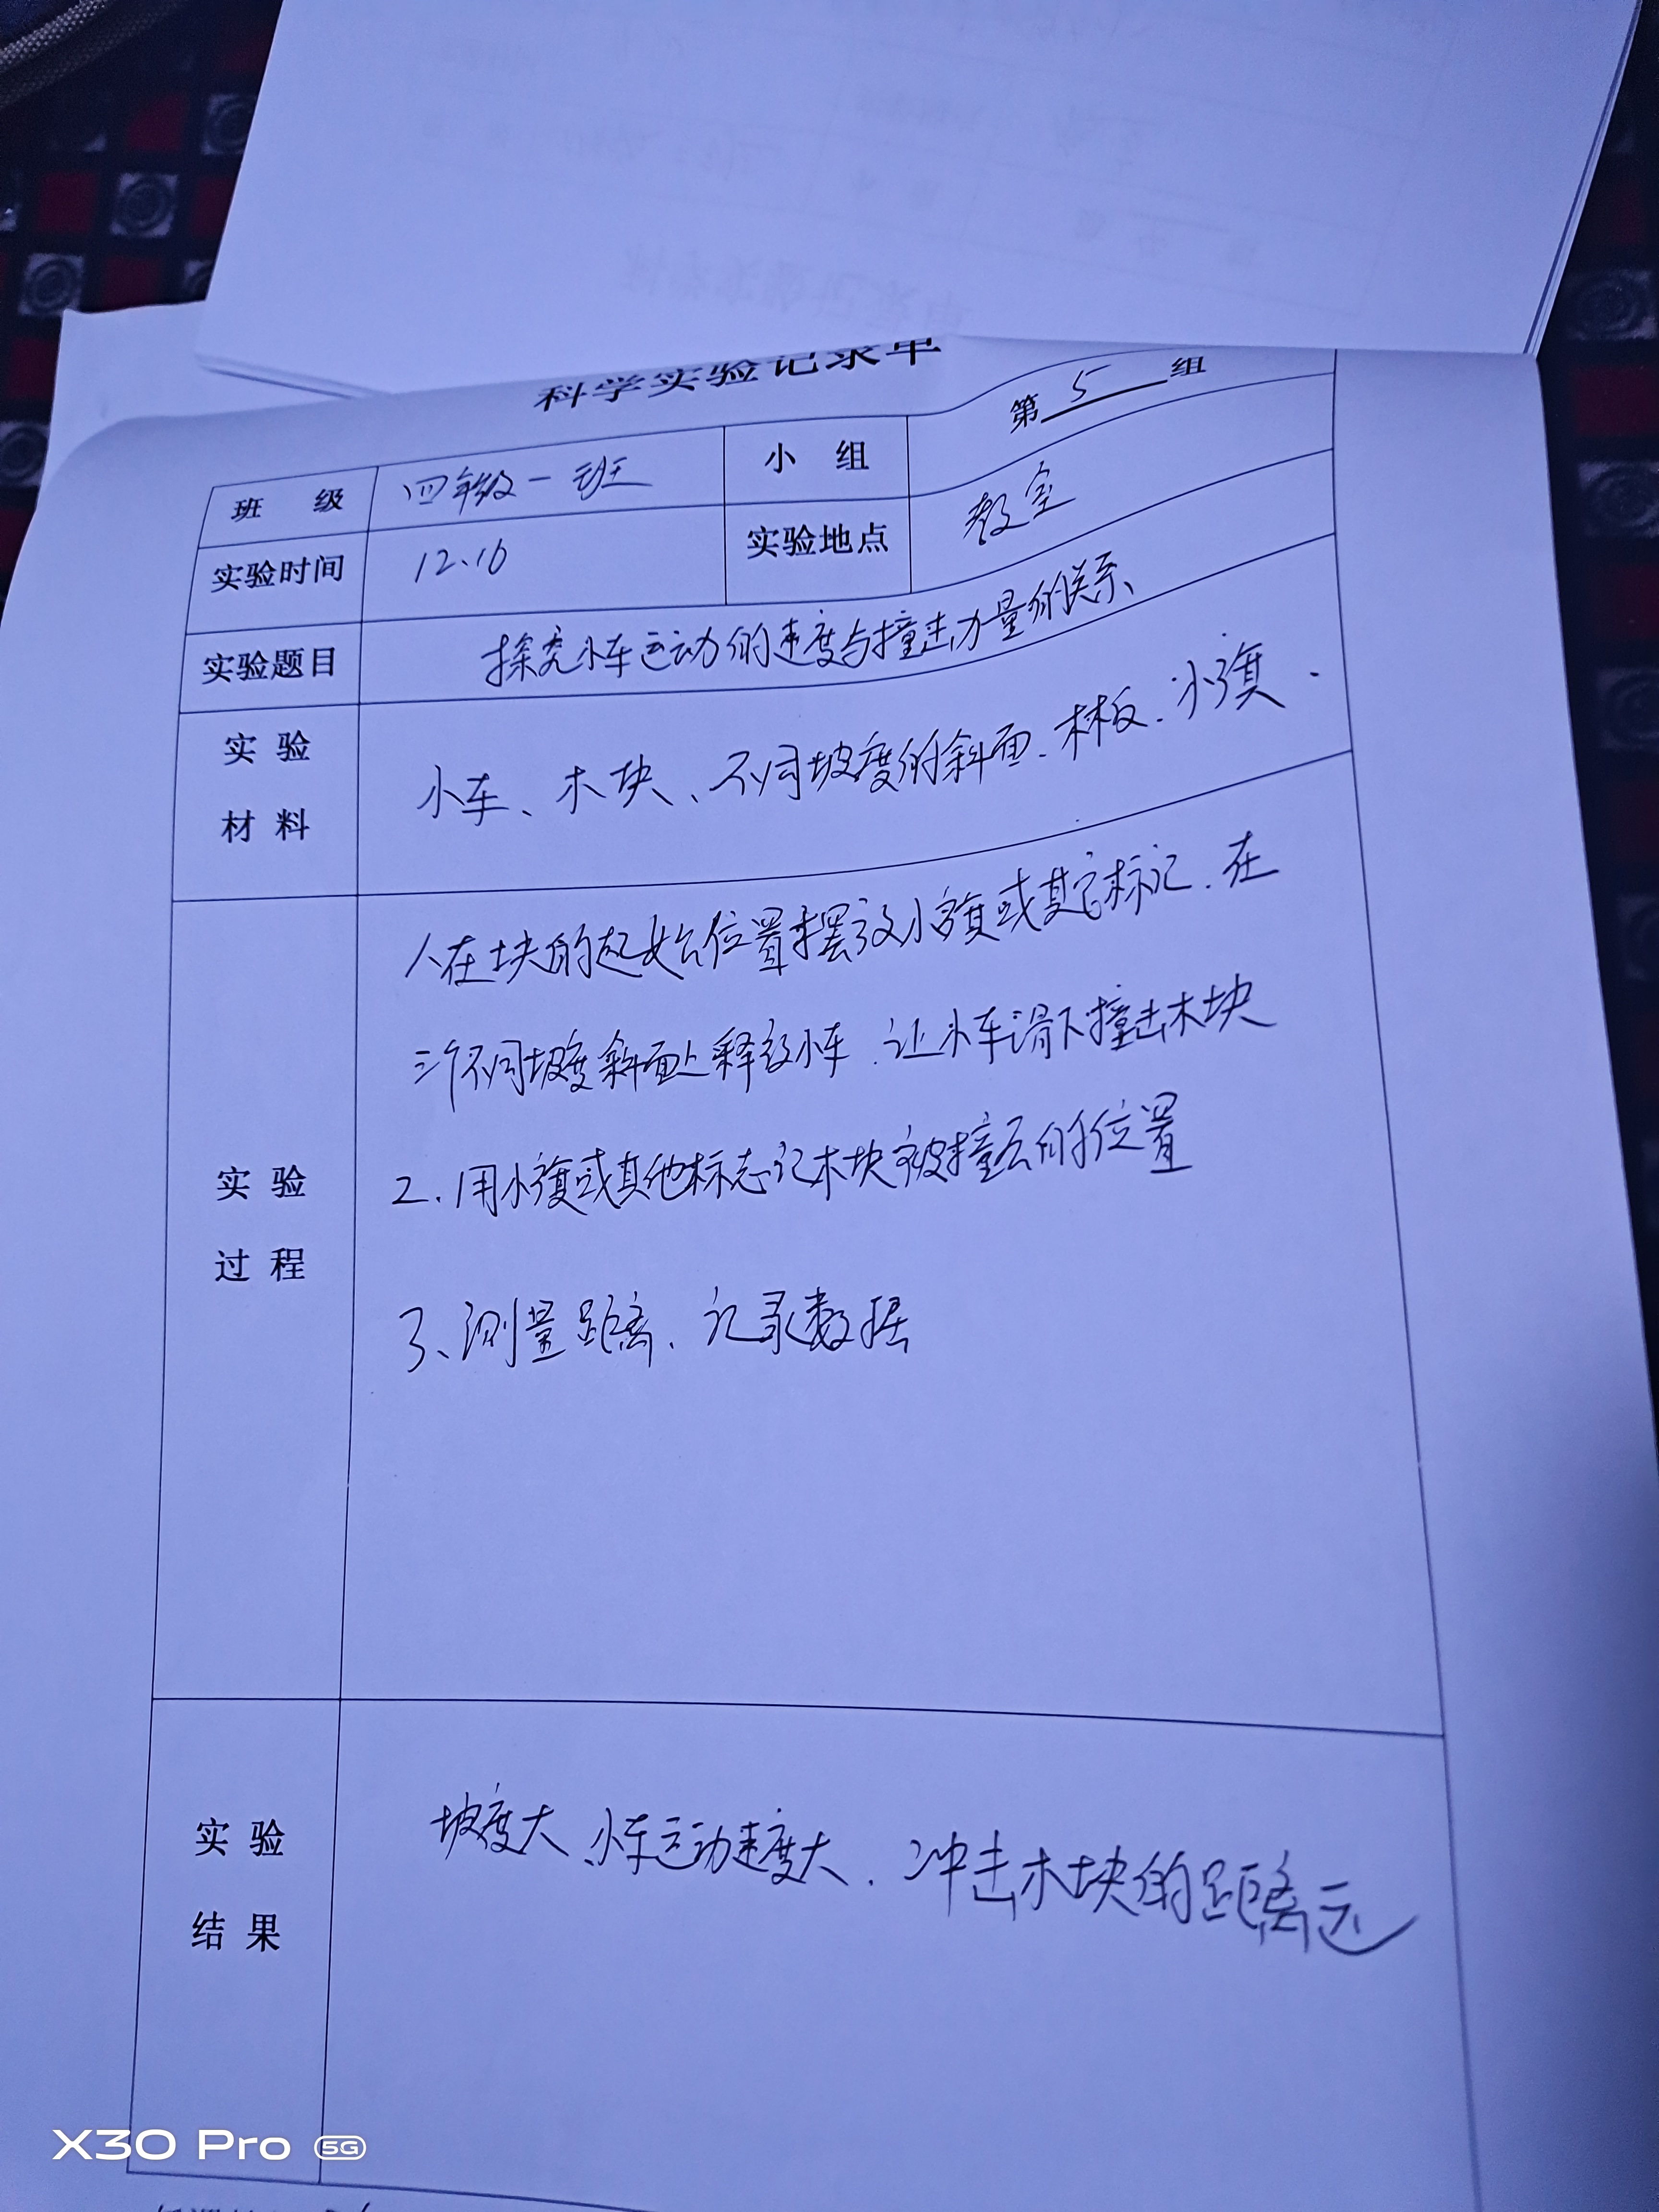 科学实验记录单
班 级 四年级一班 小 组 第 5 组
实验时间 12.16 实验地点 教室
实验题目 探究小车运动的速度与撞击力量的关系
实 验
材 料
小车、木块、不同坡度的斜面、木板、小旗.
实 验
过 程
1、在块的起始位置摆放小旗或其它标记.在
三个不同坡度斜面上释放小车.让小车滑下撞击木块
2、用小旗或其他标志记木块被撞后的位置
3、测量距离、记录数据
实 验
结 果
坡度大、小车运动速度大、冲击木块的距离远
X30 Pro 5G